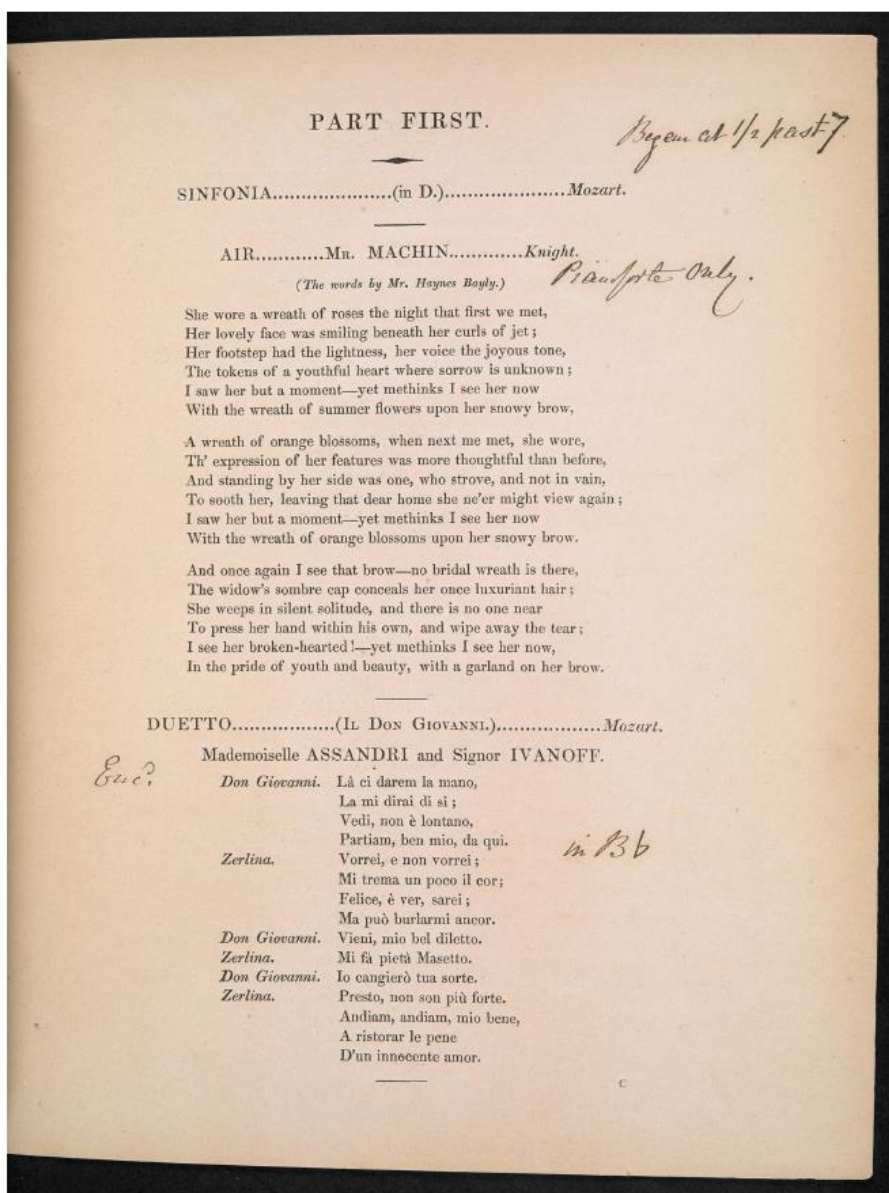 PART FIRST.
Began at 1/2 past 7
SINFONIA.....................(in D.).....................Mozart.
AIR............MR. MACHIN.............Knight.
Pianoforte Only.
(The words by Mr. Haynes Bayly.)
She wore a wreath of roses the night that first we met,
Her lovely face was smiling beneath her curls of jet;
Her footstep had the lightness, her voice the joyous tone,
The tokens of a youthful heart where sorrow is unknown;
I saw her but a moment—yet methinks I see her now
With the wreath of summer flowers upon her snowy brow,
A wreath of orange blossoms, when next me met, she wore,
Th' expression of her features was more thoughtful than before,
And standing by her side was one, who strove, and not in vain,
To sooth her, leaving that dear home she ne'er might view again;
I saw her but a moment—yet methinks I see her now
With the wreath of orange blossoms upon her snowy brow.
And once again I see that brow—no bridal wreath is there,
The widow's sombre cap conceals her once luxuriant hair;
She weeps in silent solitude, and there is no one near
To press her hand within his own, and wipe away the tear;
I see her broken-hearted!—yet methinks I see her now,
In the pride of youth and beauty, with a garland on her brow.
DUETTO..................(IL DON GIOVANNI.)..................Mozart.
Mademoiselle ASSANDRI and Signor IVANOFF.
Enc.
Don Giovanni. Là ci darem la mano,
La mi dirai di si;
Vedi, non è lontano,
Partiam, ben mio, da qui.
in B b
Zerlina. Vorrei, e non vorrei;
Mi trema un poco il cor;
Felice, è ver, sarei;
Ma può burlarmi ancor.
Don Giovanni. Vieni, mio bel diletto.
Zerlina. Mi fà pietà Masetto.
Don Giovanni. Io cangierò tua sorte.
Zerlina. Presto, non son più forte.
Andiam, andiam, mio bene,
A ristorar le pene
D'un innocente amor.
C